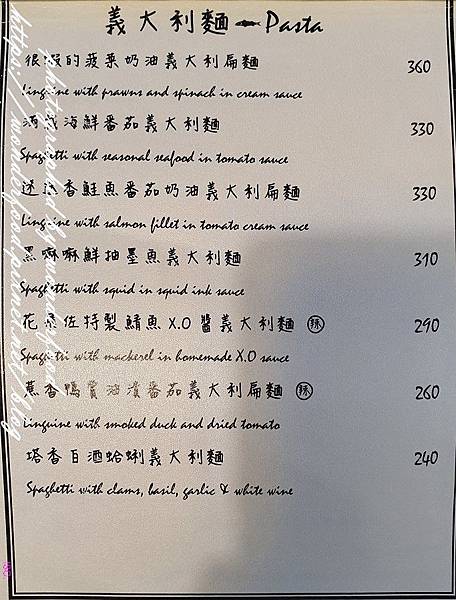 義大利麵 Pasta
很蝦的菠菜奶油義大利扁麵 360
Linguine with prawns and spinach in cream sauce
滿載海鮮番茄義大利麵 330
Spaghetti with seasonal seafood in tomato sauce
迷迭香鮭魚番茄奶油義大利扁麵 330
Linguine with salmon fillet in tomato cream sauce
黑嘛嘛鮮抽墨魚義大利麵 310
Spaghetti with squid in squid ink sauce
花佐特製鯖魚X.O醬義大利麵 辣 290
Spaghetti with mackerel in homemade X.O sauce
蔥香鴨賞油漬番茄義大利扁麵 辣 260
Linguine with smoked duck and dried tomato
塔香白酒蛤蜊義大利麵 240
Spaghetti with clams, basil, garlic & white wine